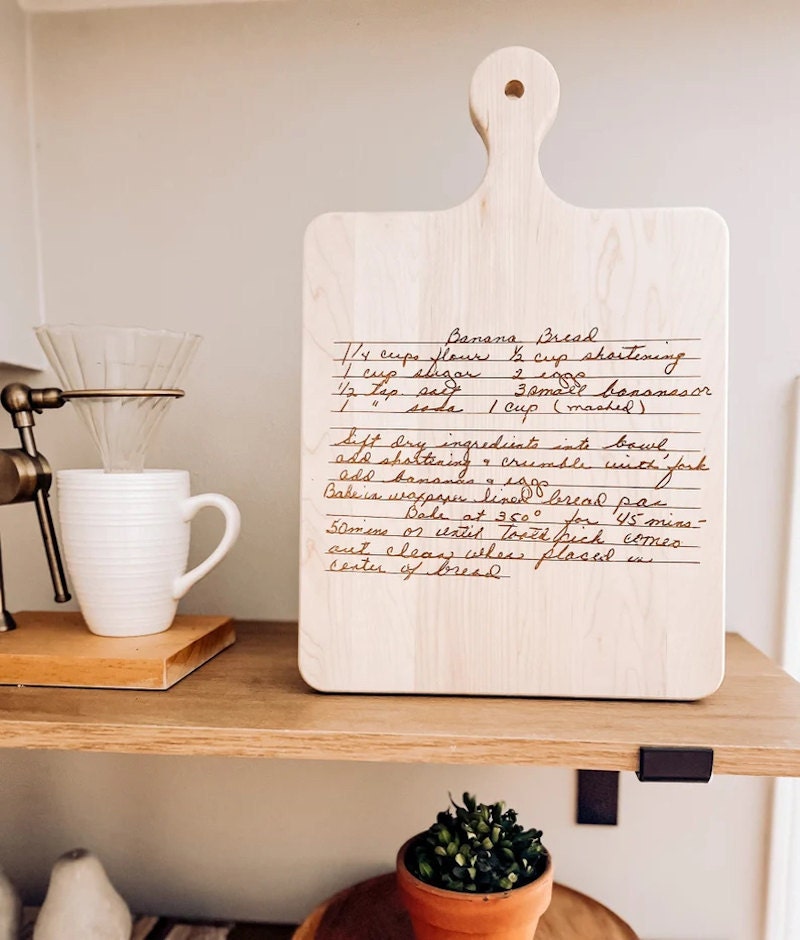 Banana Bread
1 1/4 cups flour 1/2 cup shortening
1 cup sugar 2 eggs
1/2 tsp. salt 3 small bananas or
1 " soda 1 cup (mashed)
Sift dry ingredients into bowl
add shortening & crumble with fork
add bananas & eggs
Bake in waxpaper lined bread pan
Bake at 350° for 45 mins-
50 mins or until toothpick comes
out clean when placed in
center of bread